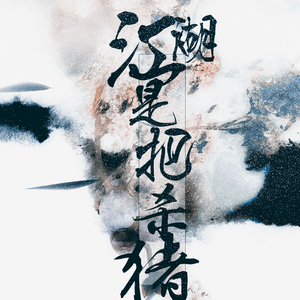 江湖是把杀猪